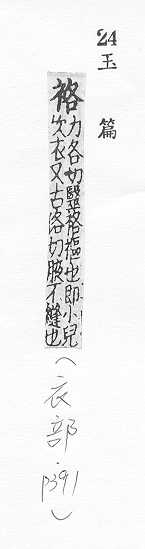 24
玉篇
袼力各切繄袼䙔也即小兒
次衣又古洛切腋不縫也
(衣部.p391)